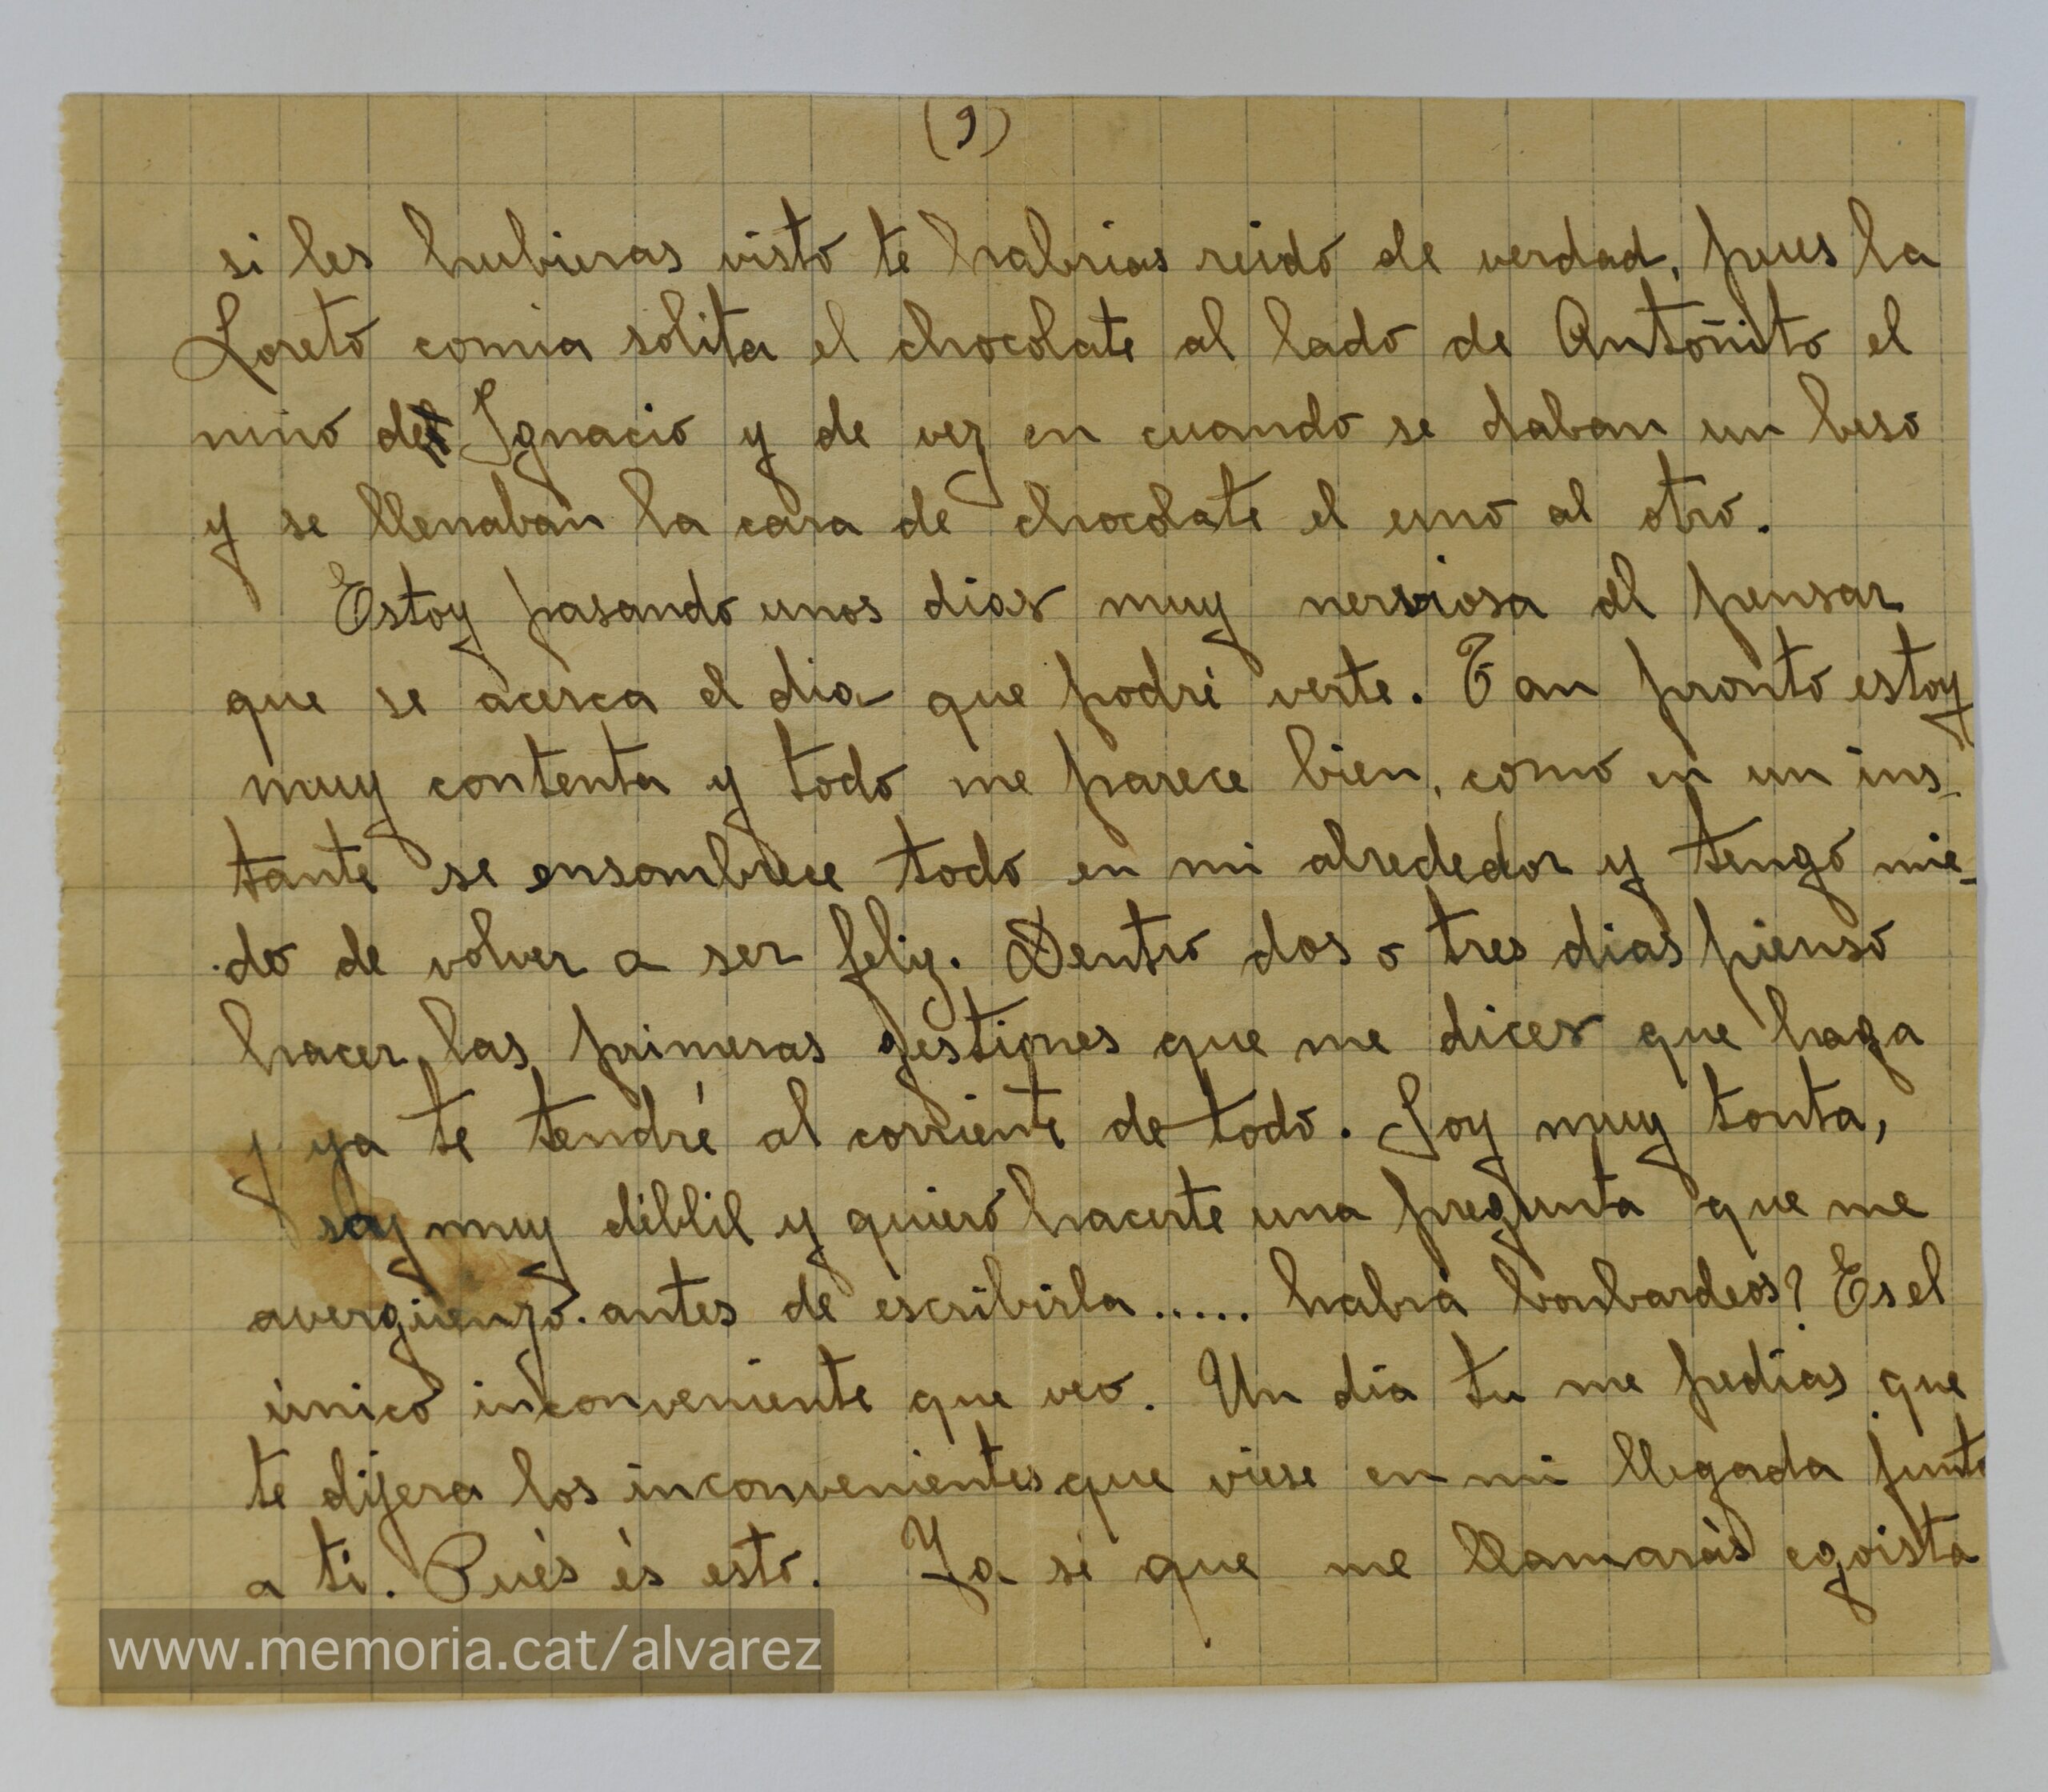 (9)
si les hubieras visto te habrias reido de verdad, pues la
Loreto comia solita el chocolate al lado de Antoñito el
nino de Ignacio y de vez en cuando se daban un beso
y se llenaban la cara de chocolate el uno al otro.
Estoy pasando unos dias muy nerviosa al pensar
que se acerca el dia que podré verte. Tan pronto estoy
muy contenta y todo me parece bien, como en un ins-
tante se ensombrece todo en mi alrededor y tengo mie-
do de volver a ser feliz. Dentro dos o tres dias pienso
hacer las primeras gestiones que me dices que haga
y ya te tendré al corriente de todo. Soy muy tonta,
soy muy diblil y quiero hacerte una pregunta que me
avergüenzo. antes de escribirla..... habrá bonbardeos? Es el
único inconveniente que veo. Un día tu me pedías que
te dijera los inconvenientes que viese en mi llegada junto
a ti. Pués és esto. Ya sé que me llamarás egoista
www.memoria.cat/alvarez